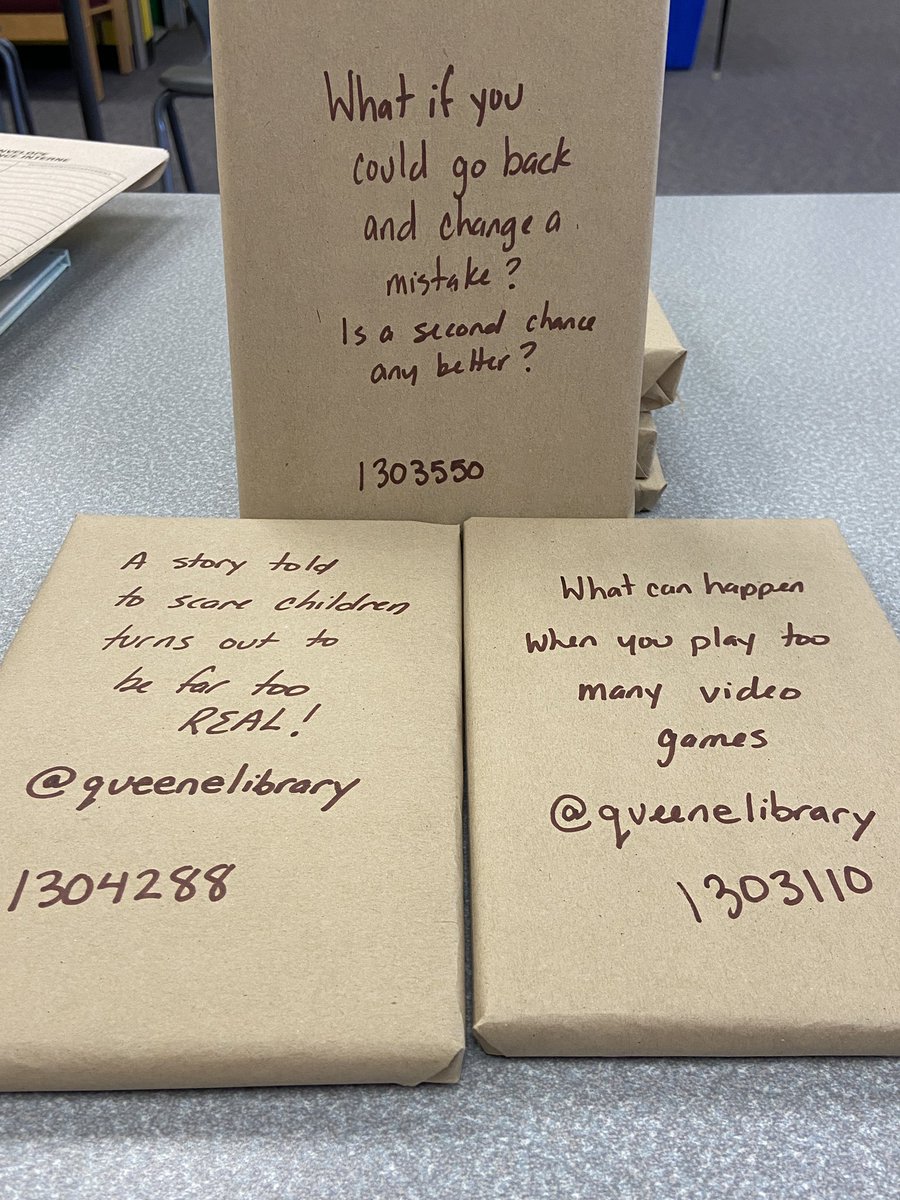 NVELOPE
NCE INTERNE
What if you
could go back
and change a
mistake?
Is a second chance
any better?
1303550
A story told
to scare children
turns out to
be far too
REAL!
@queenelibrary
1304288
What can happen
when you play too
many video
games
@queenelibrary
1303110